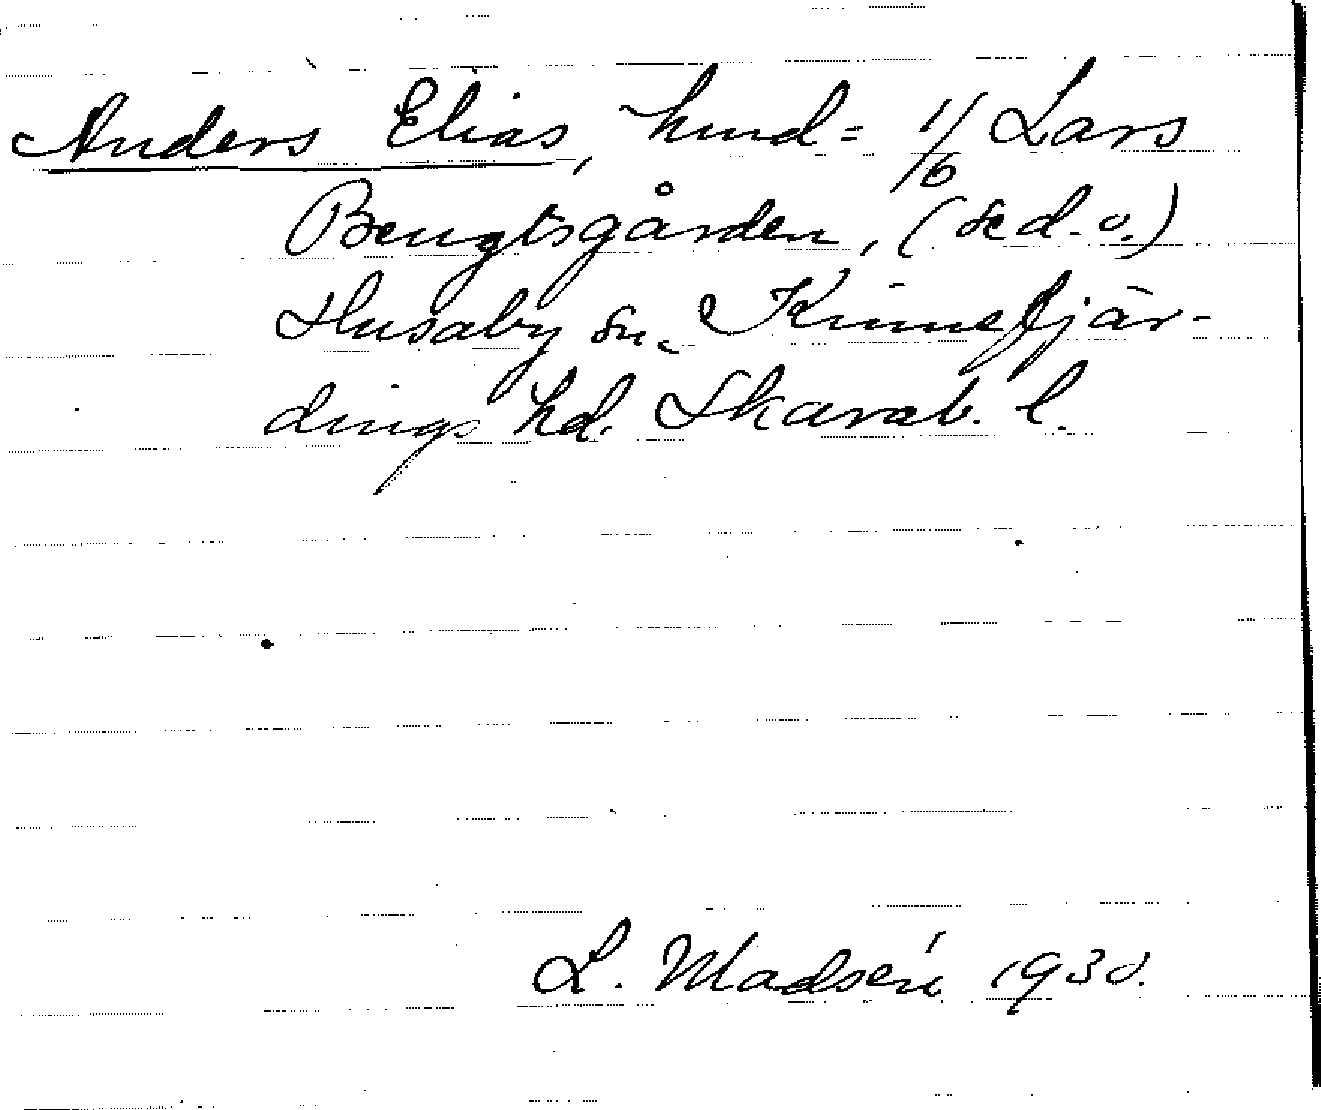 Anders Elias, hmd = 1/6 Lars
Bengtsgården, (se d. o.)
Husaby sn. Kinnefjär-
dings hd. Skarab. l.
L. Madsén 1930.